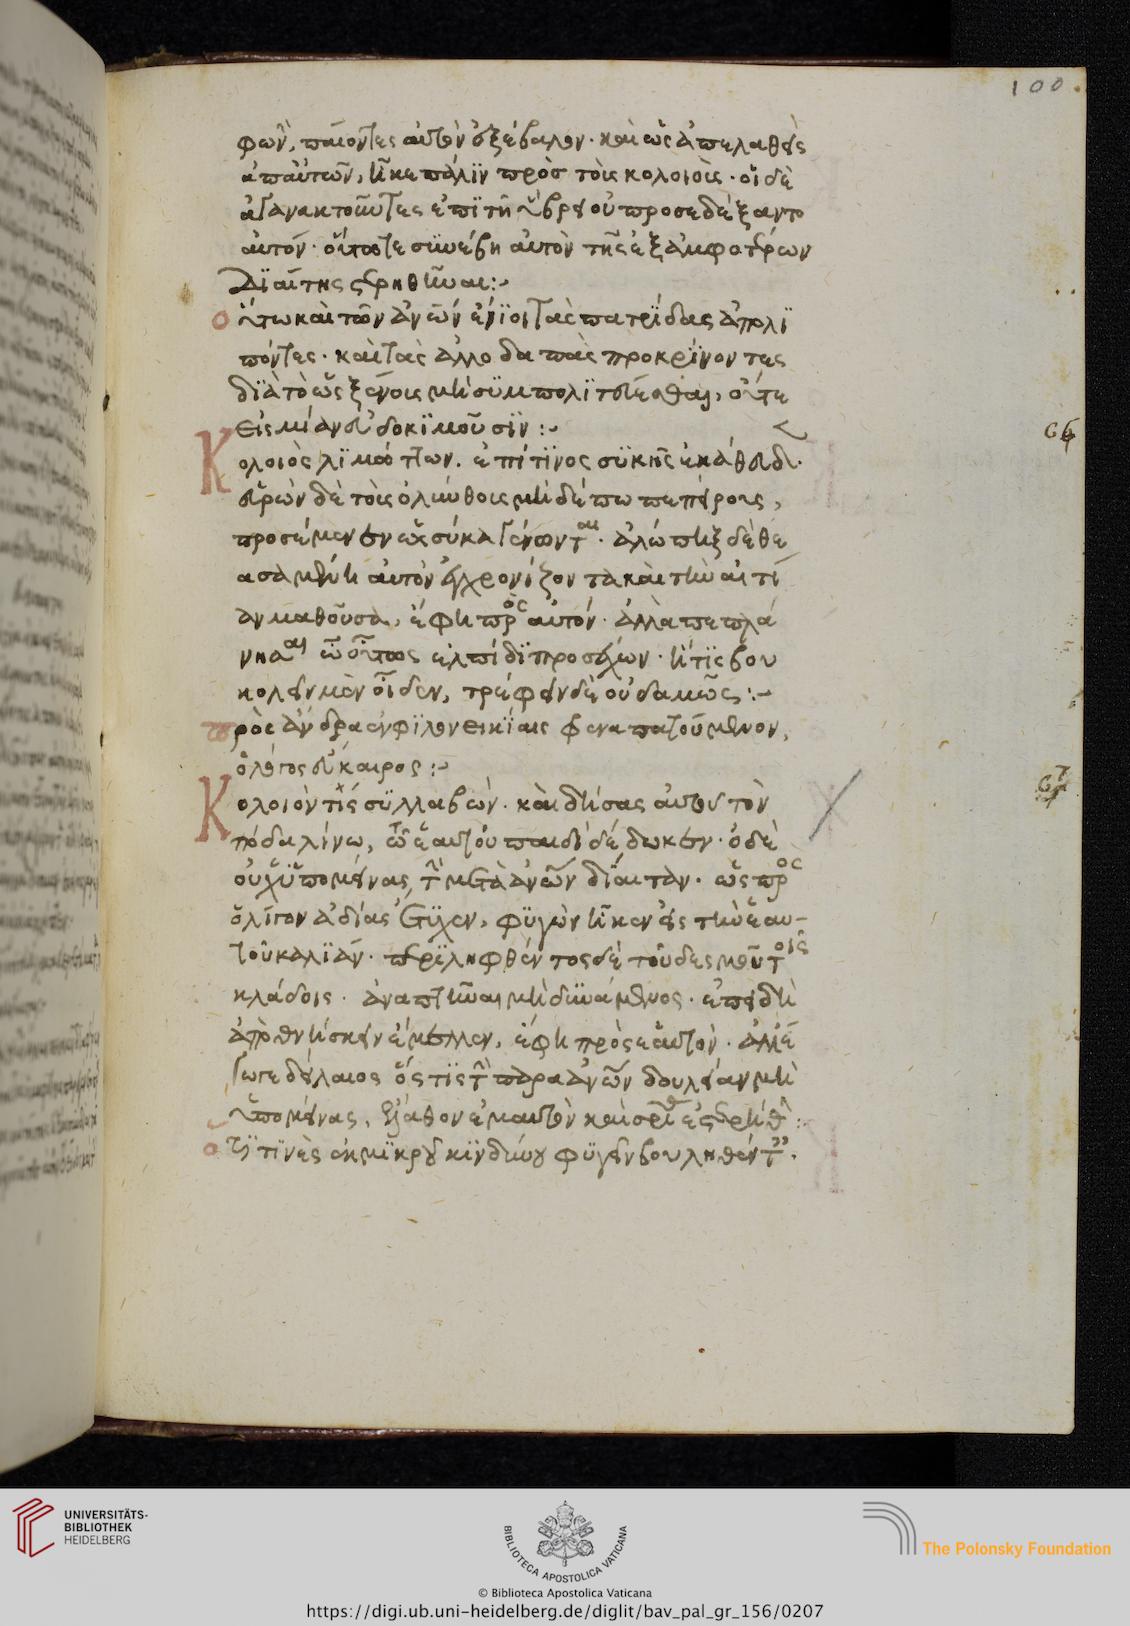 100
φων, παίοντες αυτὸν ἐξέβαλον· καὶ ὡς ἀπελαθεὶς
ἀπ' αὐτῶν, ἧκε πάλιν πρὸς τοὺς κολοιοὺς· οἱ δὲ
ἀγανακτοῦντες ἐπὶ τῇ ὕβρει οὐ προσεδέξαντο
αὐτόν· οὕτως τε συνέβη αὐτὸν τῆς ἐξ ἀμφοτέρων
διαίτης στερηθῆναι:~
Οὕτω καὶ τῶν ἀνῶν ἔνιοι τὰς πατρίδας ἀπολι
πόντες· καὶ τὰς ἀλλοδαπὰς προκρίνοντες
διὰ τὸ ὡς ξένοις μὴ συμπολιτεύεσθαι, οὔτε
εἰς μίαν εὐδοκιμοῦσιν:~
66
Κολοιὸς λιμώττων. ἐπί τινος συκῆς ἐκάθευδε·
εὑρὼν δὲ τοὺς ὀλύνθους μηδέπω πεπείρους,
προσέμενεν ἕως σύκα γένωνται· ἀλώπηξ δὲ θε
ασαμένη αὐτὸν ἐγχρονίζοντα καὶ τὴν αἰτί
αν μαθοῦσα, ἔφη πρὸς αὐτόν· ἀλλὰ πεπλά
νησαι ὦ οὗτος ἐλπίδι προσέχων· ἥτις βου
κολεῖν μὲν οἶδεν, τρέφειν δὲ οὐδαμῶς:~
πρὸς ἄνδρα ἐν φιλονεικίαις
ὁ λόγος εὔκαιρος:~
67
Κολοιόν τις συλλαβὼν· καὶ δήσας αὐτοῦ τὸν
πόδα λίνω, τῶ ἑαυτοῦ παιδὶ δέδωκεν· ὁ δὲ
οὐχ ὑπομείνας τὴν μετὰ ἀνῶν δίαιταν· ὡς πρὸς
ὀλίγον ἀδείας ἔτυχεν, φυγὼν ἧκεν εἰς τὴν ἑαυ-
τοῦ καλιάν· περιληφθέντος δὲ τοῦ δεσμοῦ τοῖς
κλάδοις· ἀναπτῆναι μὴ δυνάμενος· ἐπειδὴ
ἀποθνήσκειν ἔμελλεν, ἔφη πρὸς ἑαυτόν· ἀλλ' ἔ
γωγε δείλαιος ὅς τις τὴν παρὰ ἀνῶν δουλείαν μὴ
ὑπομείνας, ἔλαθον ἐμαυτὸν καὶ σρίας στερηθεὶς:
πόδας τινὲς ἐκ μικροῦ κινδύνου φυγεῖν βουληθέντες.
UNIVERSITÄTS-
BIBLIOTHEK
HEIDELBERG
BIBLIOTECA APOSTOLICA VATICANA
The Polonsky Foundation
© Biblioteca Apostolica Vaticana
https://digi.ub.uni-heidelberg.de/diglit/bav_pal_gr_156/0207